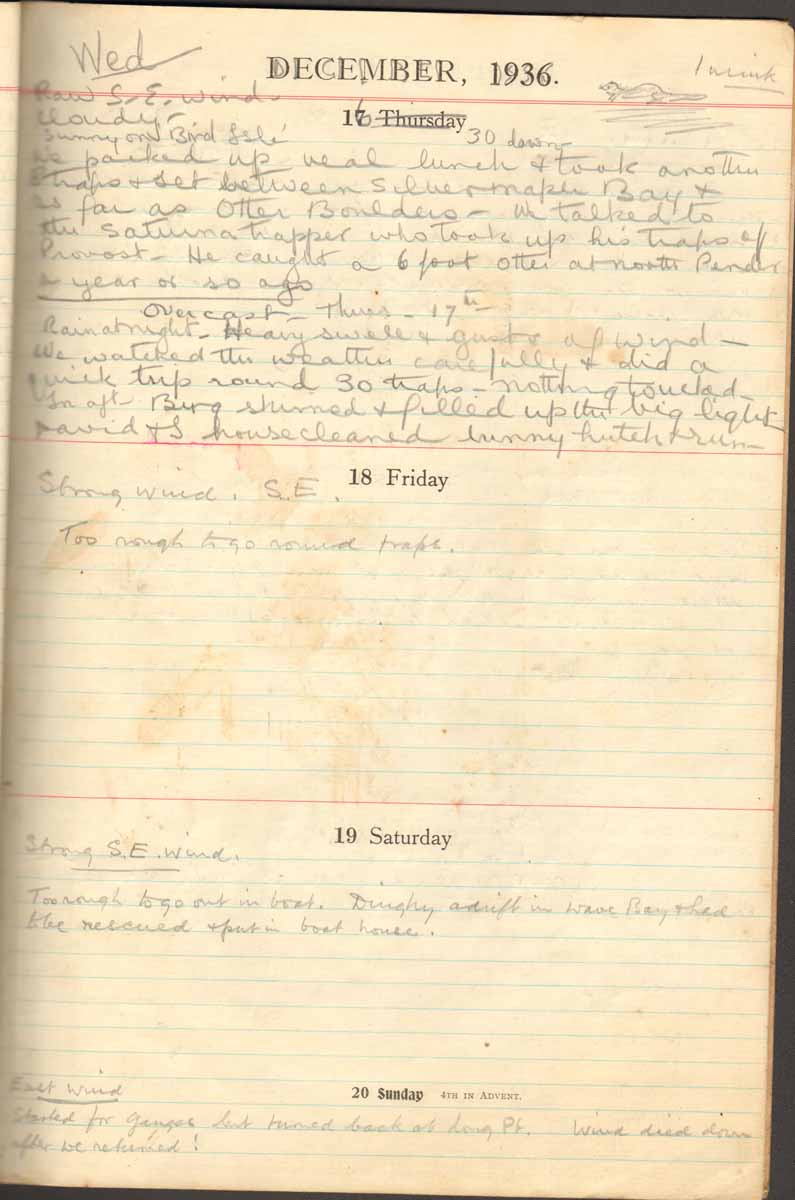 Wed
DECEMBER, 1936.
1 mink
Raw S.E. wind
cloudy -
16 Thursday
sunny on Bird Isle
30 down
We packed up veal lunch & took another
traps & set between Silvermaple Bay &
as far as Otter Boulders - We talked to
the Saturna trapper who took up his traps off
Provost - He caught a 6 foot Otter at north Pender
a year or so ago
Overcast - Thurs - 17th
Rain at night - Heavy swell & gusts of wind -
We watched the weather carefully & did a
quick trip round 30 traps - nothing touched -
In aft - Berg skinned & filled up the big light
David & I housecleaned bunny hutch & run -
18 Friday
Strong wind. S.E.
Too rough to go round traps.
19 Saturday
Strong S.E. wind.
Too rough to go out in boat. Dinghy adrift in Wave Bay & had
to be rescued & put in boat house.
20 Sunday 4TH IN ADVENT.
East wind
Started for Ganges but turned back at Long Pt. Wind died down
after we returned!